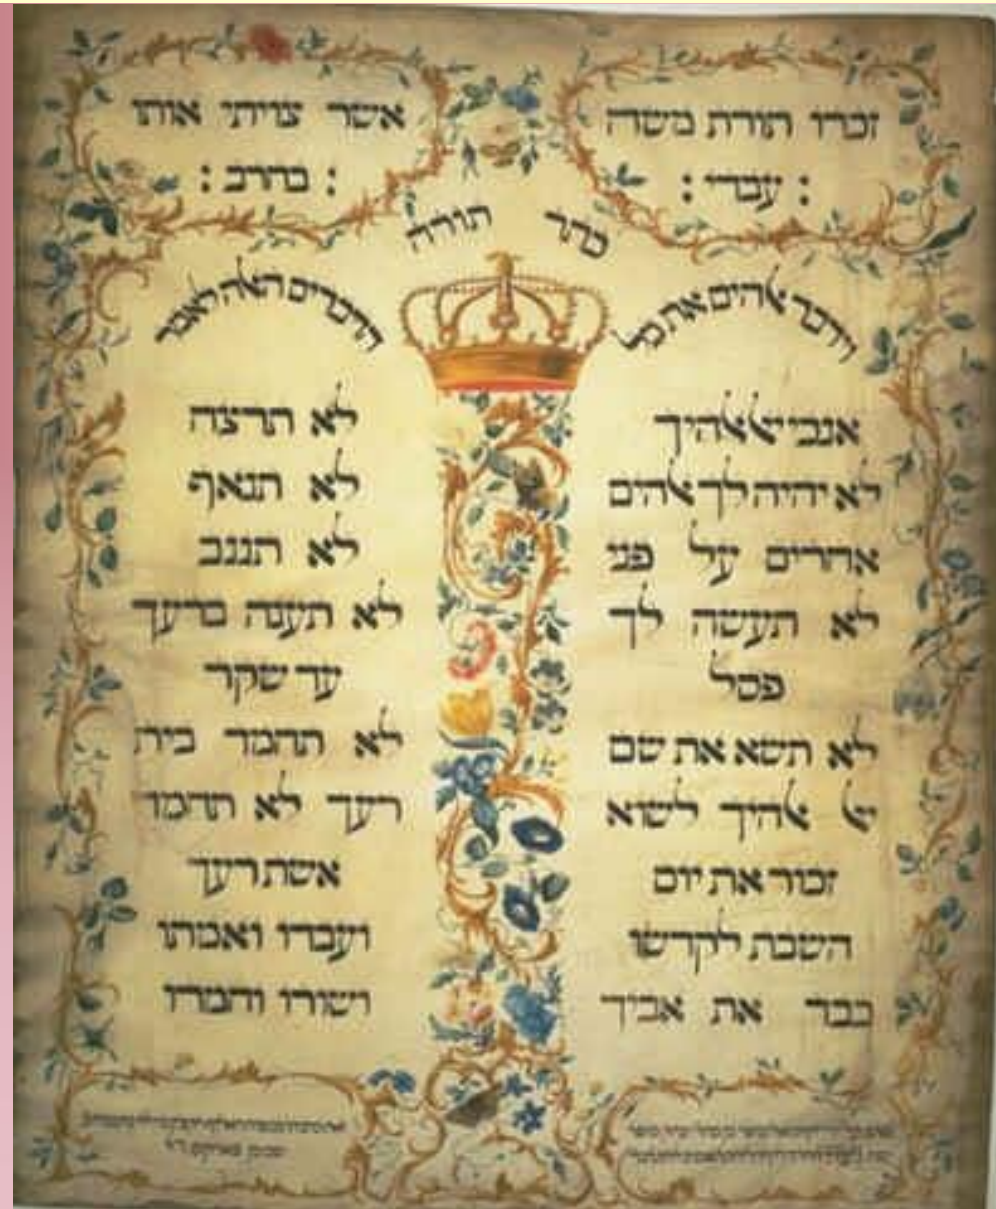 זכרו תורת משה
: עבדי :
אשר צויתי אותו
: בחרב :
כתר תורה
וידבר אלהים את כל
הדברים האלה לאמר
אנכי יא אלהיך
לא יהיה לך אלהים
אחרים על פני
לא תעשה לך
פסל
לא תשא את שם
יא אלהיך לשוא
זכור את יום
השבת לקדשו
כבד את אביך
לא תרצח
לא תנאף
לא תגנב
לא תענה ברעך
עד שקר
לא תחמד בית
רעך לא תחמד
אשת רעך
ועבדו ואמתו
ושורו וחמרו